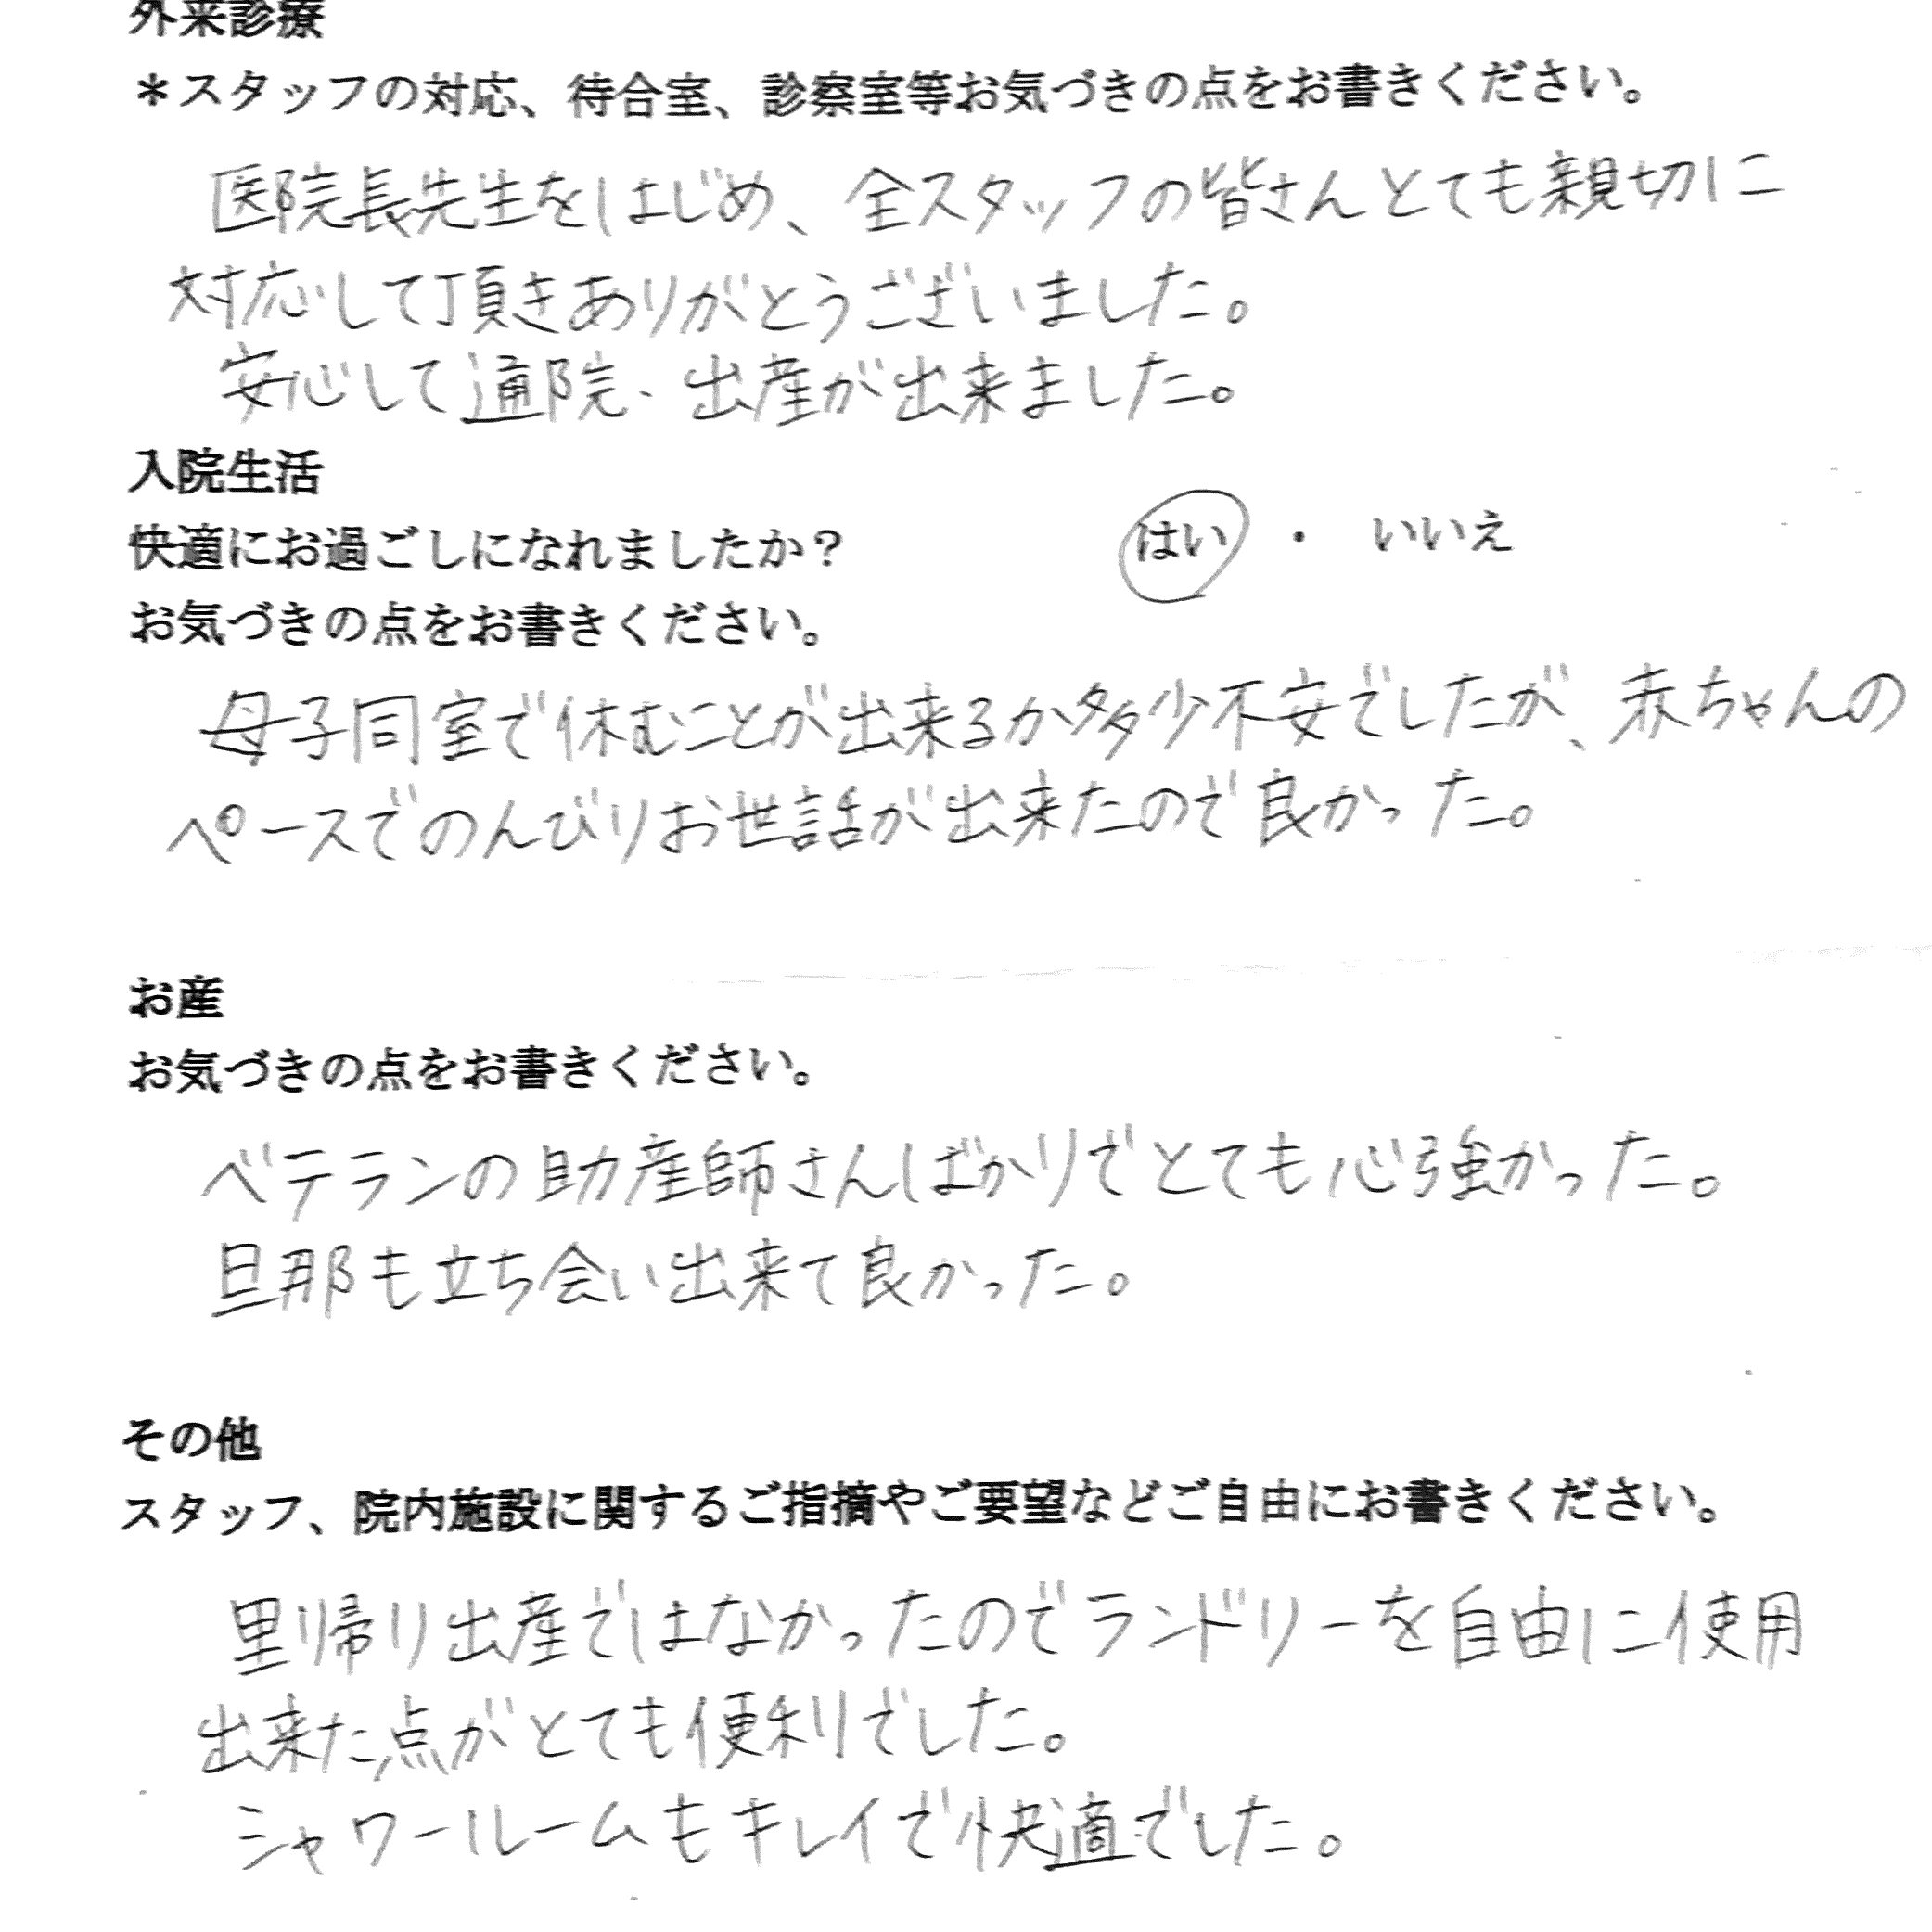 外来診療
＊スタッフの対応、待合室、診察室等お気づきの点をお書きください。
医院長先生をはじめ、全スタッフの皆さんとても親切に
対応して頂きありがとうございました。
安心して通院、出産が出来ました。
入院生活
快適にお過ごしになれましたか？ はい ・ いいえ
お気づきの点をお書きください。
母子同室で休むことが出来るか多少不安でしたが、赤ちゃんの
ペースでのんびりお世話が出来たので良かった。
お産
お気づきの点をお書きください。
ベテランの助産師さんばかりでとても心強かった。
旦那も立ち会い出来て良かった。
その他
スタッフ、院内施設に関するご指摘やご要望などご自由にお書きください。
里帰り出産ではなかったのでランドリーを自由に使用
出来た点がとても便利でした。
シャワールームもキレイで快適でした。